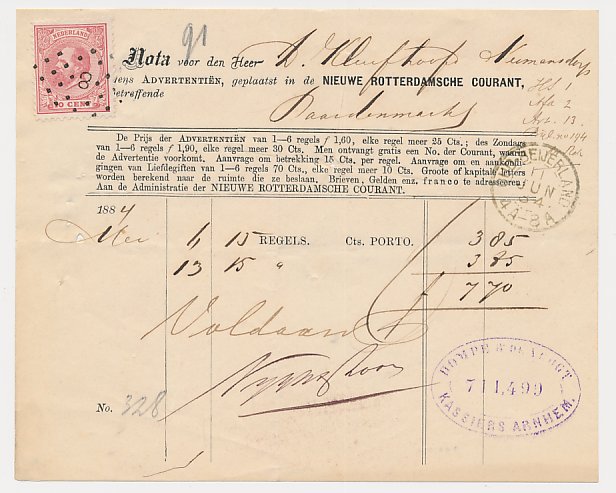 NEDERLAND
10 CENT
81
91
Nota voor den Heer
wegens ADVERTENTIËN, geplaatst in de NIEUWE ROTTERDAMSCHE COURANT,
Betreffende Paardenmarkt
De Prijs der ADVERTENTIËN van 1—6 regels ƒ 1,60, elke regel meer 25 Cts.; des Zondags
van 1—6 regels ƒ 1,90, elke regel meer 30 Cts. Men ontvangt gratis een No. der Courant, waarin
de Advertentie voorkomt. Aanvragen om betrekking 15 Cts. per regel. Aanvragen om en aankondi-
gingen van Liefdegiften van 1—6 regels 70 Cts., elke regel meer 10 Cts. Groote of kapitale letters
worden berekend naar de ruimte die ze beslaan. Brieven, Gelden enz. franco te adresseeren
Aan de Administratie der NIEUWE ROTTERDAMSCHE COURANT.
BEIJERLAND
JUN
84
1884
Mei 4 15 REGELS. Cts. PORTO. 3 85
13 15 " 3 85
7 70
Voldaan
ROMPE & DE VLUGT
711,499
KASSIERS ARNHEM.
No. 328